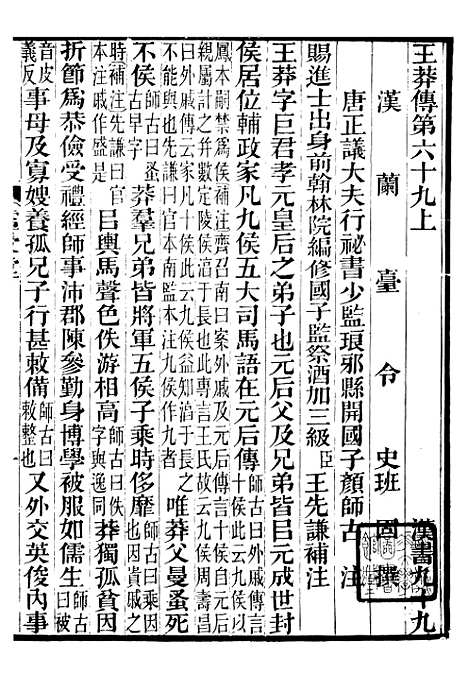 王莽傳第六十九上　漢書九十九
漢蘭臺令史班固撰
唐正議大夫行祕書少監琅邪縣開國子顏師古注
賜進士出身前翰林院編修國子監祭酒加三級臣王先謙補注
王莽字巨君孝元皇后之弟子也元后父及兄弟皆㠯元成世封
侯居位輔政家凡九侯五大司馬語在元后傳師古曰外戚傳言十侯此云九侯以
鳳本嗣禁爲侯補注齊召南曰案外戚及元后傳言十侯此云九侯以親屬計之幷數定陵侯淳于長也此傳專言王氏故云九侯周壽昌
曰外戚傳云家凡十侯此云九侯益以淳于長不能與也先謙曰官本南監本注九侯作九者唯莽父曼蚤死
不侯師古曰蚤古早字莽羣兄弟皆將軍五侯子乘時侈靡師古曰乘因也因貴戚之
時補注先謙曰官本注戚作盛是㠯輿馬聲色佚游相高師古曰佚字與逸同莽獨孤貧因
折節爲恭儉受禮經師事沛郡陳參勤身博學被服如儒生師古曰被
音皮義反事母及寡嫂養孤兄子行甚敕備師古曰敕整也又外交英俊內事